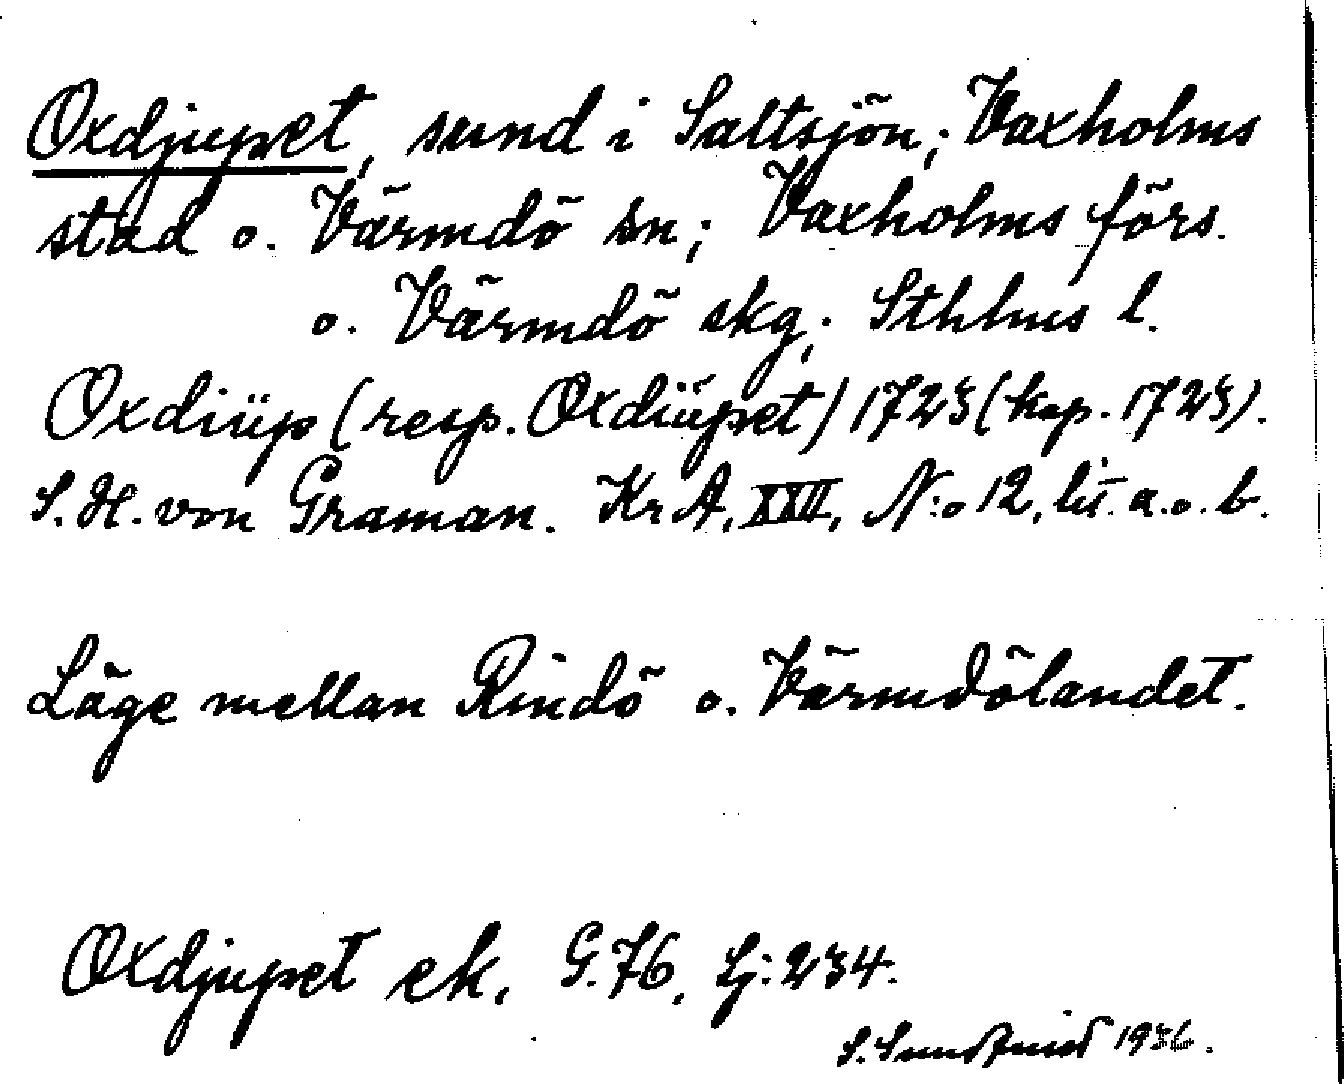 Oxdjupet, sund i Saltsjön; Vaxholms
stad o. Värmdö sn; Vaxholms förs.
o. Värmdö skg, Sthlms l.
Oxdiüp (resp. Oxdiüpet) 1723 (kop. 1723).
S. H. von Graman. KrA, XXII, N:o 12, lit. a. o. b.
Läge mellan Rindö o. Värmdölandet.
Oxdjupet ek, G. 76, Lj: 234.
S. 1936.